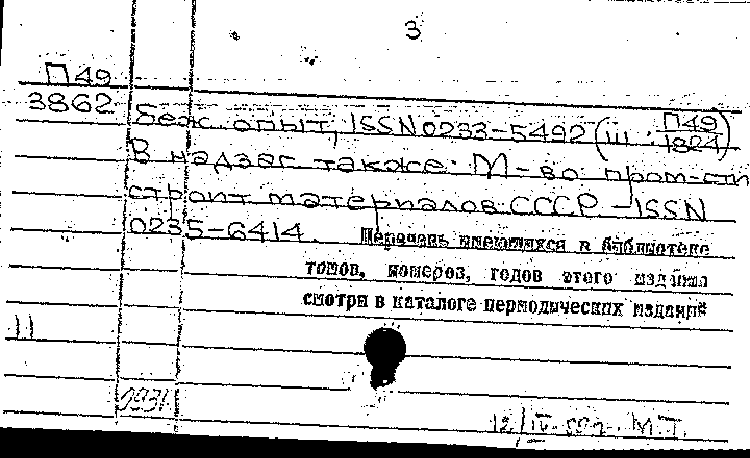 3
П49
3862
беж. опыт, ISSN 0233-5492 (Ш: П49/1824)
В надзаг также: М-во пром-сти
строит материалов СССР - ISSN
0235-6414. Перечень имеющихся в библиотеке
томов, номеров, годов этого издания
смотри в каталоге периодических изданий
11
0931
12/IV М.Т.